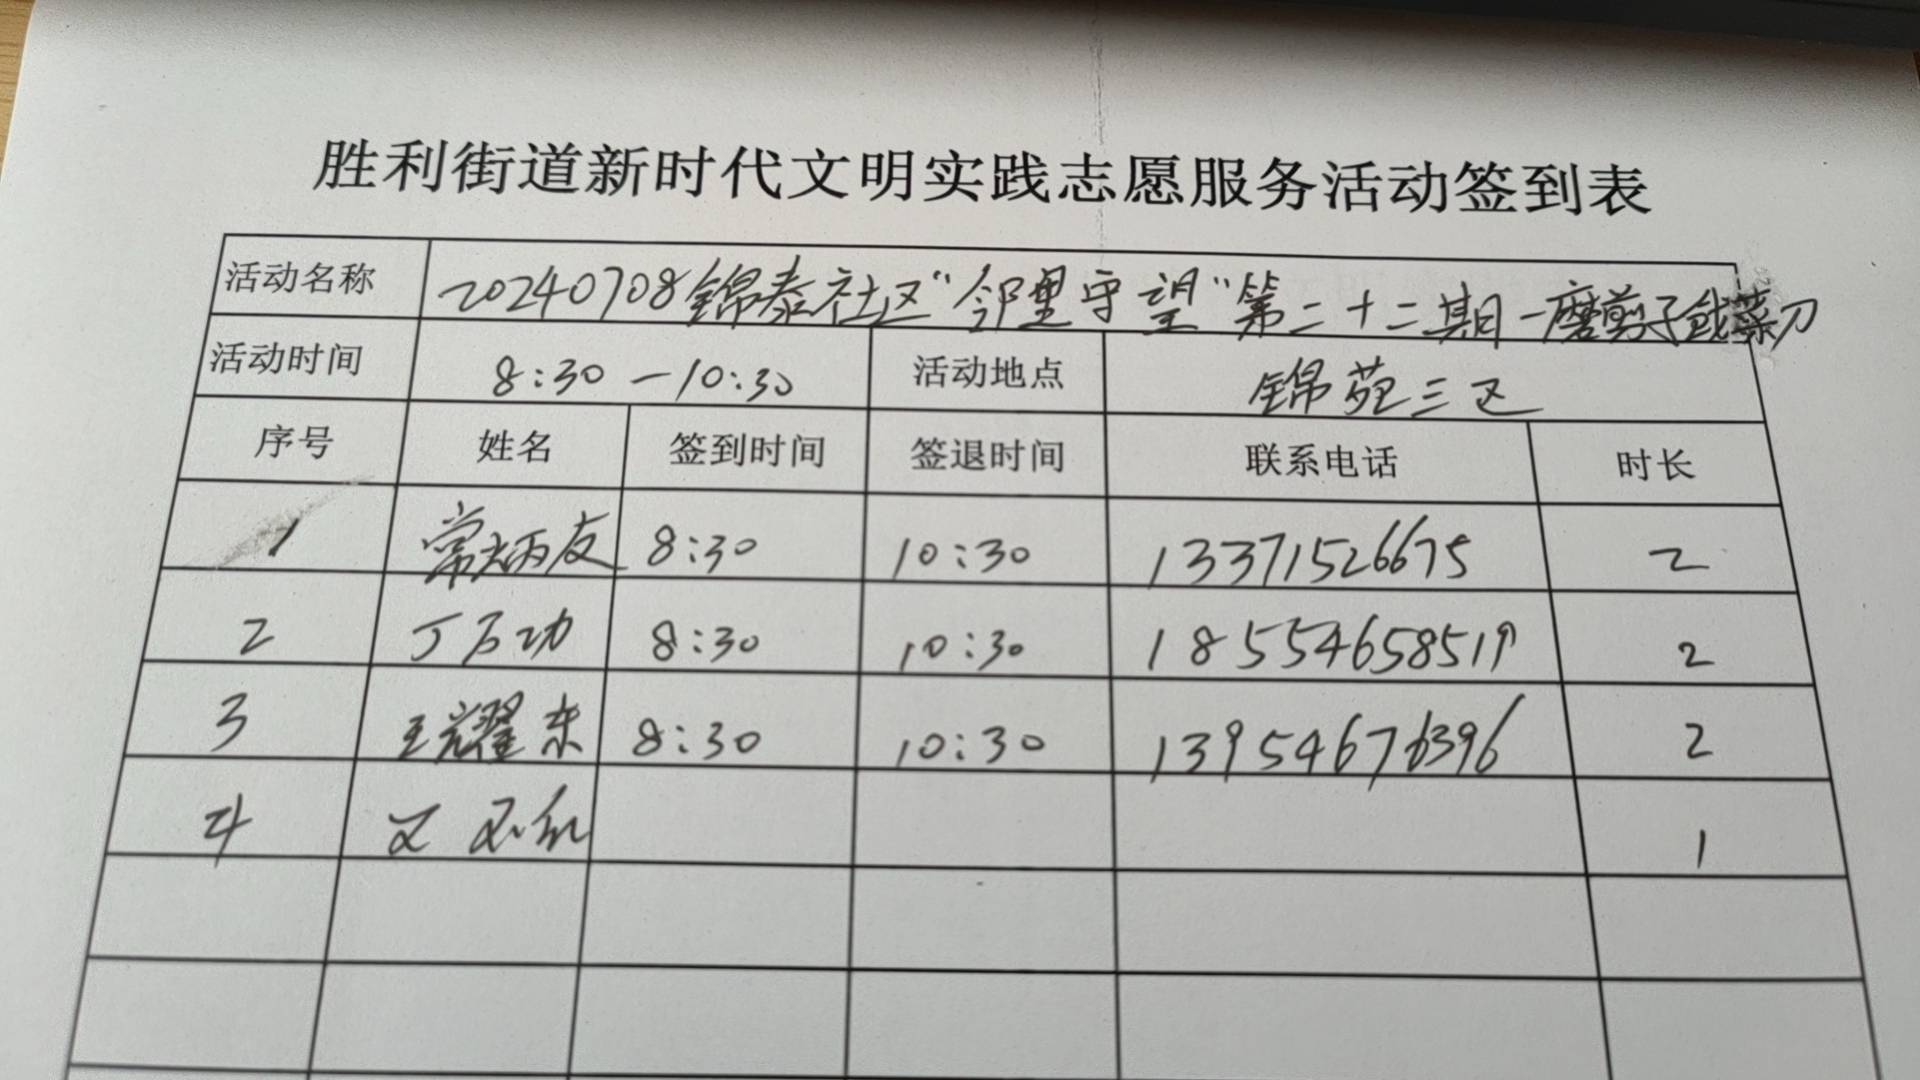 胜利街道新时代文明实践志愿服务活动签到表
活动名称 20240708锦泰社区“邻里守望”第二十二期-磨剪子戗菜刀
活动时间 8:30-10:30 活动地点 锦苑三区
序号 姓名 签到时间 签退时间 联系电话 时长
1 常炳友 8:30 10:30 13371526675 2
2 丁万功 8:30 10:30 18554658519 2
3 王耀东 8:30 10:30 13954676396 2
4 1